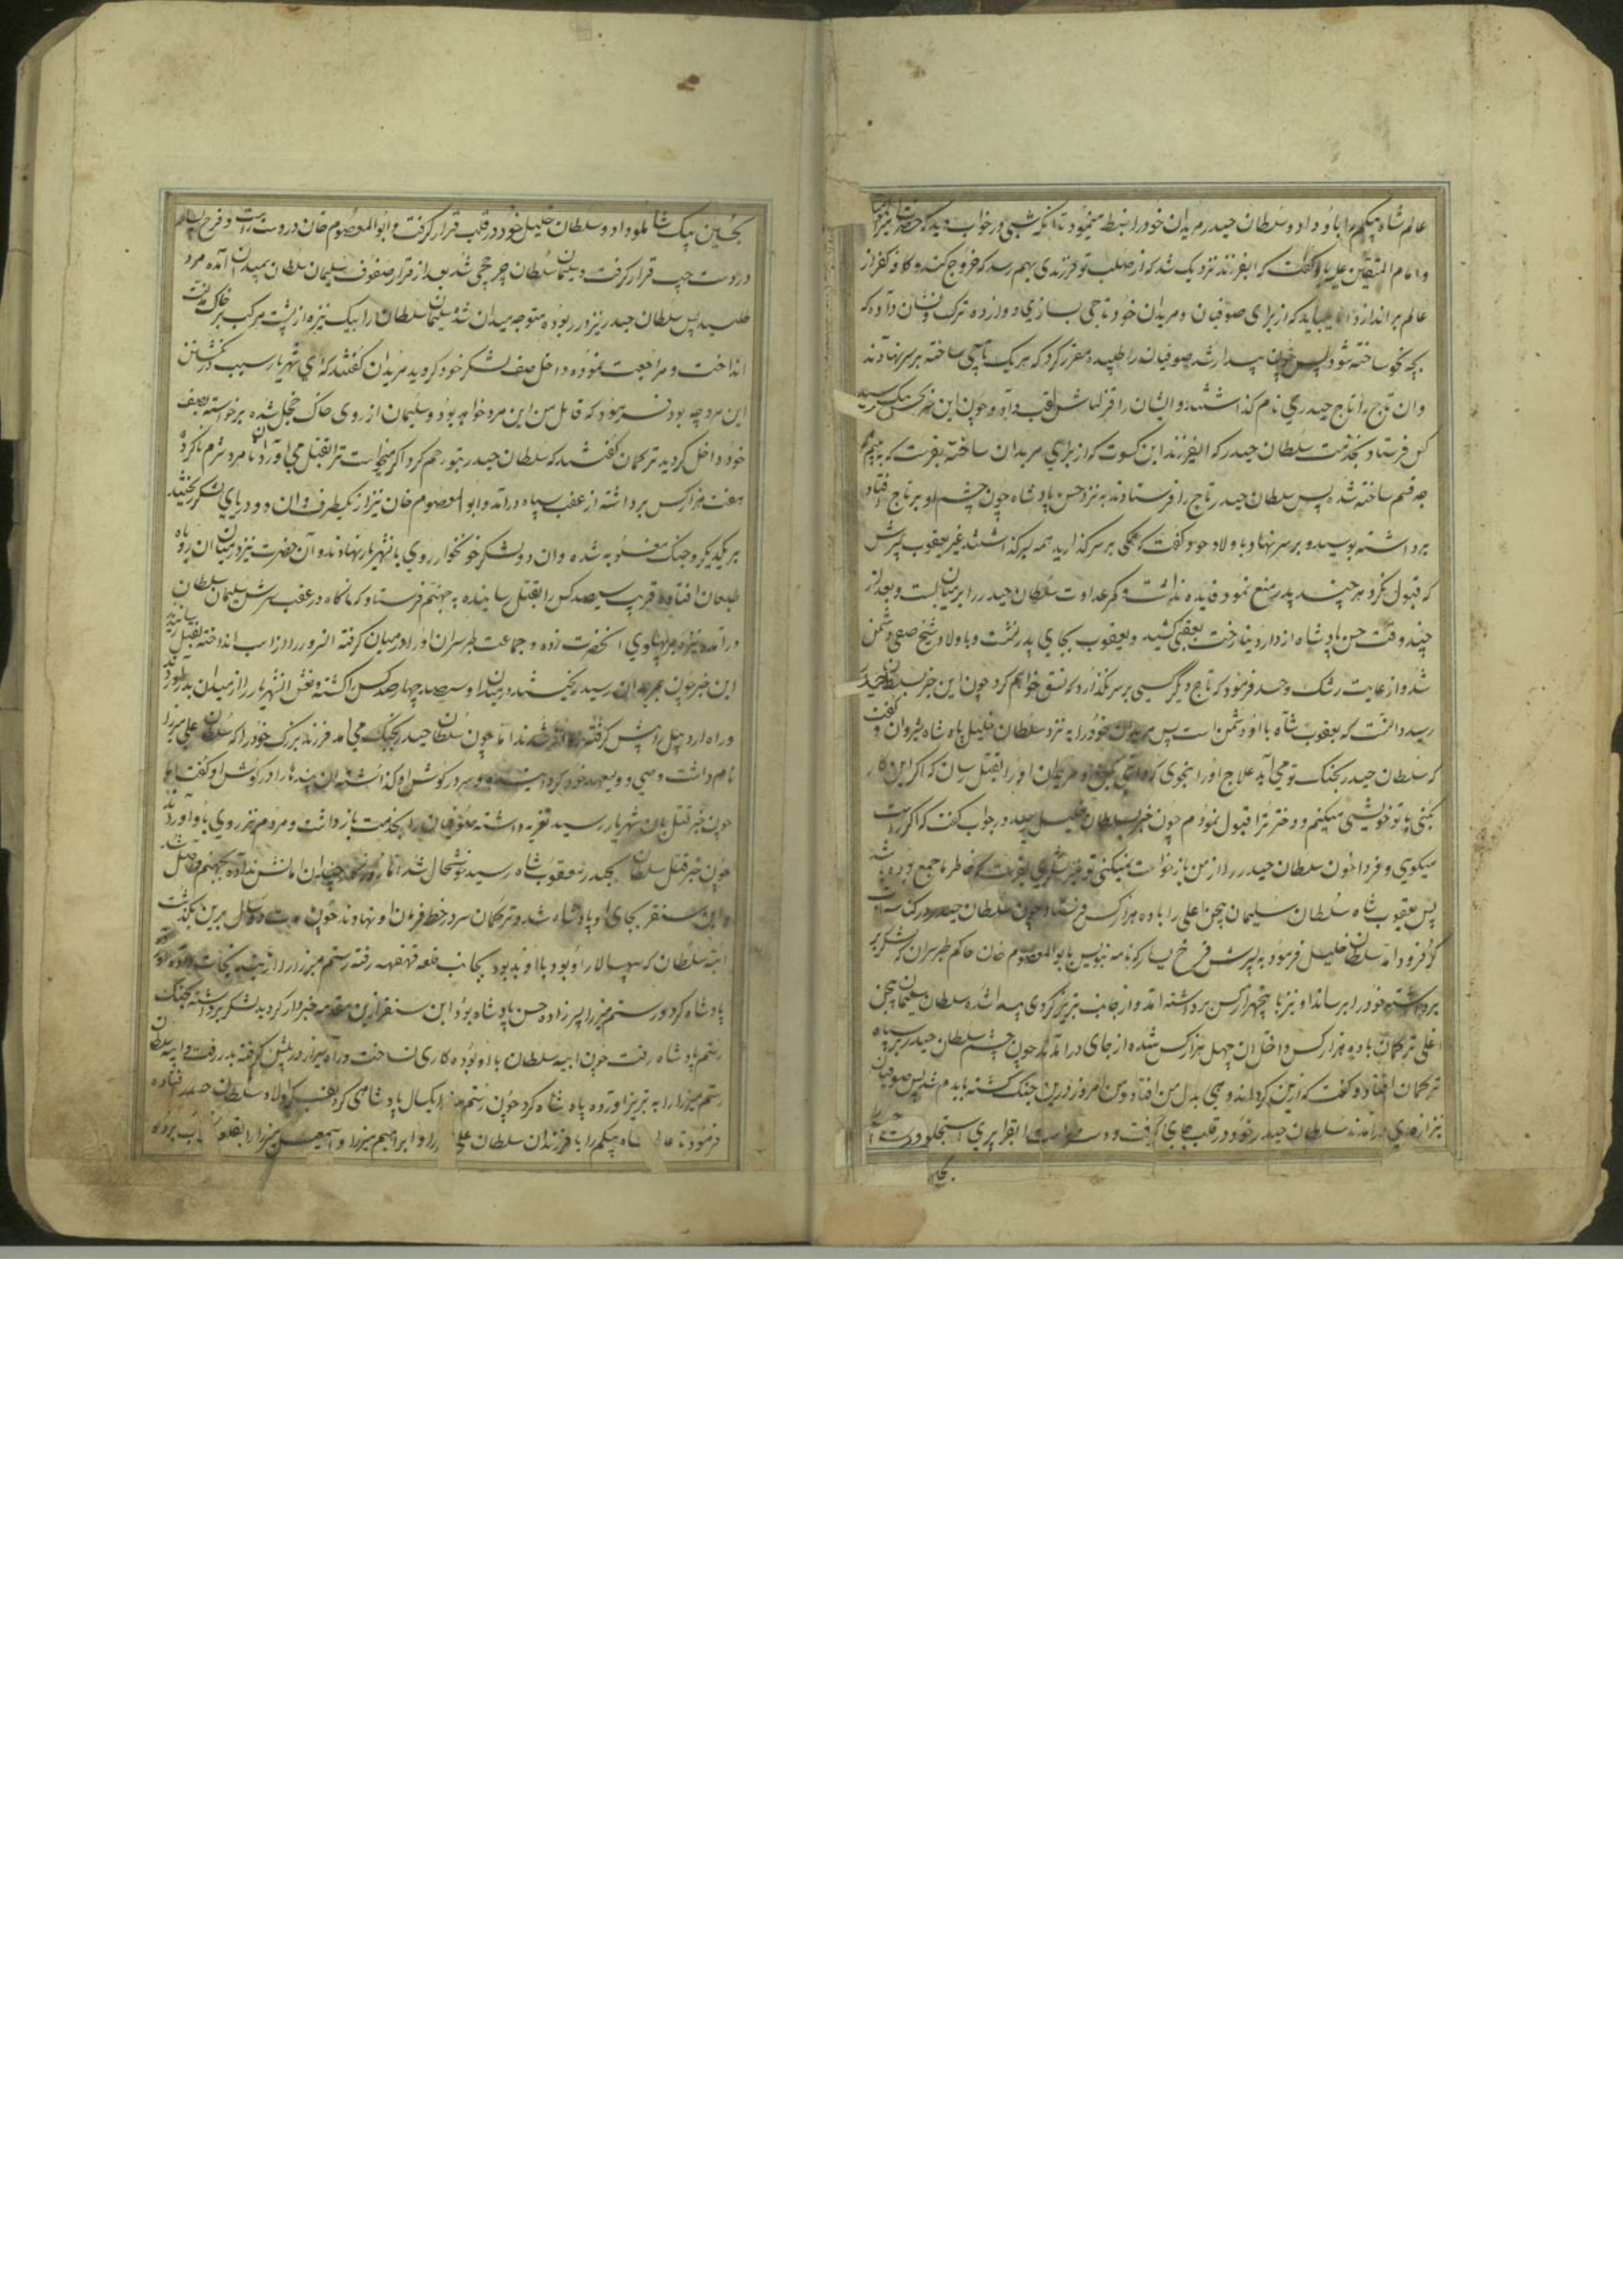 عالم شاه بیکم را باو داد و سلطان حیدر مریدان خود را ضبط مینمود تا آنکه شبی در خواب دید که حضرت
و امام المتقین علی باو گفت که ایفرزند نزدیک شد که از صلب تو فرزندی بهم رسد که خروج کند و کفر از
عالم براندازد میباید که از برای صوفیان و مریدان خود تاجی بسازی و دوازده ترک
ساخته شود پس چون بیدار شد صوفیان را طلبیده مقرر کرد که هر یک تاجی ساخته بر سر نهادند
و ان تاج را تاج حیدری نام گذاشتند و ایشان را قزلباش لقب داد و چون این خبر رسید
کس فرستاد بخدمت سلطان حیدر که ایفرزند این کسوت که از برای مریدان ساخته بفرست که به بینم
چه قسم ساخته شده پس سلطان حیدر تاج را فرستادند به نزد حسن پادشاه چون چشم او بر تاج افتاد
برداشته بوسید و بر سر نهاد و باولاد خود گفت که همکی بر سر گذارید همه بسر گذاشتند غیر یعقوب پسرش
که قبول نکرد هر چند پدر منع نمود فایده نداشت و کمر عداوت سلطان حیدر را بر میان بست و بعد از
چند وقت حسن پادشاه از دار دنیا رخت بعقبی کشید و یعقوب بجای پدر نشست و با اولاد شیخ صفی دشمن
شد و از غایت رشک و حسد فرمود که تاج دیگر کسی بر سر نگذارد که نسق خواهم کرد چون این خبر بسلطان حیدر
رسید دانست که یعقوب شاه با او دشمن است پس خود را به نزد سلطان خلیل پادشاه شروان و گفت
که سلطان حیدر بجنک تو می آید علاج او را بنحوی که دانی بکن و مریدان او را بقتل رسان که اگر این کار
بکنی با تو خویشی میکنم و دختر ترا قبول نمودم چون خبر بسلطان خلیل رسید در جواب گفت که اکر راست
میکوی و فردا خون سلطان حیدر را از من بازخواست نمیکنی تو نیز لشکری بفرست که خاطر ما جمع بوده باشد
پس یعقوب شاه سلطان سلیمان بیجن اعلی را با ده هزار کس فرستاد چون سلطان حیدر
فرود آمد سلطان خلیل فرمود به پسرش فرخ یسار که نامه بنویس بابو المعصوم خان حاکم طبرسران که لشکر
برداشته خود را برساند او نیز با پنجهزار کس برداشته آمد و از جانب تبریز کردی پیدا شد و سلطان سلیمان بیجن
اعلی ترکمان با ده هزار کس داخل ان چهل هزار کس شده از جای درآمدند چون چشم سلطان حیدر بر سپاه
ترکمان افتاد و گفت که ازین کرد اندوهی بدل من افتاد و من امروز درین جنک کشته باید شد پس صوفیان
نیز از جای درآمدند سلطان حیدر خود در قلب جای گرفت و دست راست را بقرا پیری استجلو و دست
بحسین بیک شاملو داد و سلطان خلیل خود در قلب قرار گرفت و ابوالمعصوم خان در دست راست و فرخ یسار
در دست چپ قرار گرفت و سلیمان سلطان چرخچی شد بعد از قرار صفوف سلیمان سلطان بمیدان آمده مرد
طلبید پس سلطان حیدر نیزه در ربوده متوجه میدان شد سلیمان سلطان را بیک نیزه از پشت مرکب بر خاک
انداخت و مراجعت نموده داخل صف لشکر خود گردید مریدان گفتند که ای شهریار سبب نکشتن
این مرد چه بود فرمود که قاتل من این مرد خواهد بود و سلیمان از روی خاک خجل شده برخواسته بصف
خود داخل گردید ترکمانان گفتند که سلطان حیدر بتو رحم کرد اکر میخواست ترا بقتل می آورد نامرد شرم ناکرده
هفت هزار کس برداشته از عقب سپاه درآمد و ابوالمعصوم خان نیز از یکطرف و ان دو دریای لشکر ریختند
بر یکدیکر و جنک مغلوبه شده و ان دو لشکر خونخوار روی بانشهریار نهادند و آن حضرت نیز در میان ان روباه
طبعان افتاده قریب سیصد کس را بقتل رسانیده به جهنم فرستاد که ناکاه در عقب سرش سلیمان سلطان
درآمده نیزه بر پهلوی آنحضرت زده و جماعت طبرسران او را در میان گرفته آنسرور را از اسب انداخته بقتل رسانیدند
این خبر چون بمریدان رسید ریختند در میدان و سیصد چهارصد کس را کشته و نعش انشهریار را از میدان بدر آوردند
و راه اردبیل را پیش گرفته روانه شدند اما چون سلطان حیدر بجنک می آمد فرزند بزرک خود را که سلطان علی میرزا
نام داشت وصی و ولیعهد خود کرده و سر در کوش او گذاشته ان پندها را در کوش او گفت اما
چون خبر قتل ان شهریار رسید تعزیه داشته صوفیان را بخدمت بازداشت و مردم نیز روی باو آوردند
چون خبر قتل سلطان حیدر بیعقوب شاه رسید خوشحال شد اما روزگار چندان امانش نداده بجهنم واصل شد
و ابن سنقر بجای او پادشاه شد و ترکمان سر در خط فرمان او نهادند چون مدت دو سال برین بگذشت
ابیه سلطان که سپهسالار او بود با او بد بود بجانب قلعه قهقهه رفته رستم میرزا را از بند نجات داده
پادشاه کرد و رستم میرزا پسرزاده حسن پادشاه بود ابن سنقر ازین مقدمه خبردار کردید لشکر برداشته بجنک
رستم پادشاه رفت چون ابیه سلطان با او بوده کاری نساخت و راه شیراز در پیش گرفته بدر رفت و ابیه سلطان
رستم میرزا را به تبریز آورده پادشاه کرد چون رستم میرزا یکسال پادشاهی کرد بفکر اولاد سلطان حیدر افتاده
فرمود تا عالم شاه بیکم را با فرزندان سلطان علی میرزا و ابراهیم میرزا و اسمعیل میرزا را بقلعه برده